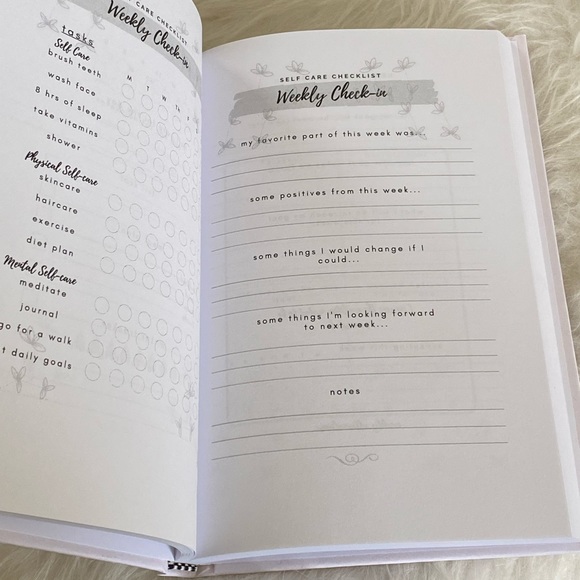 CARE CHECKLIST
Weekly Check-in
tasks
M T W Th
Self Care
brush teeth
wash face
8 hrs of sleep
take vitamins
shower
Physical Self-care
skincare
haircare
exercise
diet plan
Mental Self-care
meditate
journal
go for a walk
daily goals
SELF CARE CHECKLIST
Weekly Check-in
my favorite part of this week was...
some positives from this week...
some things I would change if I
could...
some things I'm looking forward
to next week...
notes